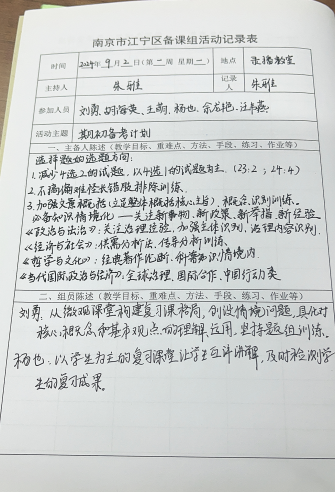 南京市江宁区备课组活动记录表
时间 2024年9月2日(第二周 星期二) 地点 录播教室
主持人 朱雅 记录人 朱雅
参加人员 刘勇、胡海英、王萌、杨也、余龙艳、汪
活动主题 期初备考计划
一、主备人陈述(教学目标、重难点、方法、手段、练习、作业等)
选择题的选题方向:
1.减少4选2的试题,以4选1的试题为主.(23:2;24:4)
2.不搞偏难怪长错肢排除训练.
3.加强文景概括(立足整体概括核心主旨),概念识别训练。
必备知识情境化——关注新事物、新政策、新举措、新经验
《政治与法治》:关注治理经验,加强主体识别,治理内容识别.
《经济与社会》:供需分析法,传导分析训练。
《哲学与文化》:经典著作论断,科普知识情境为
《当代国际政治与经济》:全球治理,国际合作,中国行动类
二、组员陈述(教学目标、重难点、方法、手段、练习、作业等)
刘勇:从微观课堂构建复习课格局,创设情境问题,具化对
核心概念和基本观点的理解、运用,坚持题组训练。
杨也:以学生为主的复习课堂让学生互评讲解,及时检测学
生的复习成果。